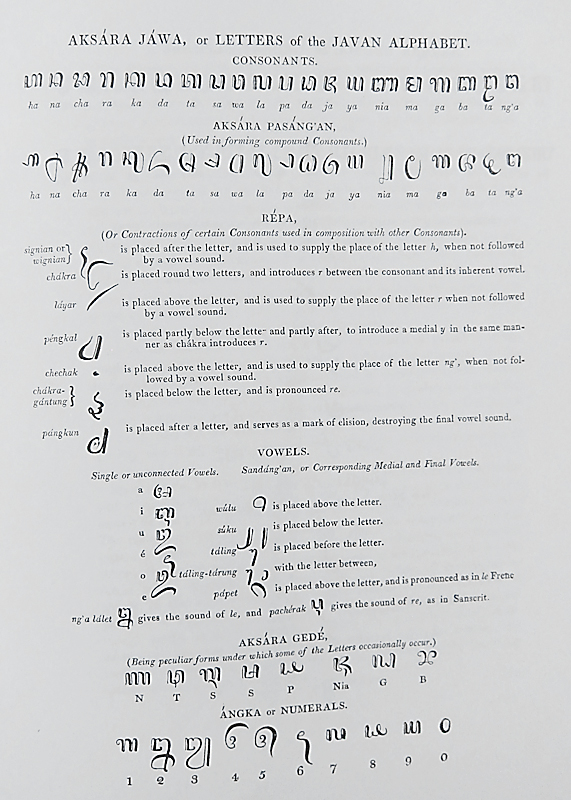 AKSÁRA JÁWA, or LETTERS of the JAVAN ALPHABET.
CONSONANTS.
ꦲ ꦤ ꦕ ꦫ ꦏ ꦢ ꦠ ꦱ ꦮ ꦭ ꦥ ꦝ ꦗ ꦪ ꦚ ꦩ ꦒ ꦧ ꦛ ꦔ
ha na cha ra ka da ta sa wa la pa da ja ya nia ma ga ba ta ng'a
AKSÁRA PASÁNG'AN,
(Used in forming compound Consonants.)
ha na cha ra ka da ta sa wa la pa da ja ya nia ma ga ba ta ng'a
RÉPA,
(Or Contractions of certain Consonants used in composition with other Consonants).
signian or wignian} is placed after the letter, and is used to supply the place of the letter h, when not followed
by a vowel sound.
chákra is placed round two letters, and introduces r between the consonant and its inherent vowel.
láyar is placed above the letter, and is used to supply the place of the letter r when not followed
by a vowel sound.
péngkal is placed partly below the letter and partly after, to introduce a medial y in the same man-
ner as chákra introduces r.
chechak is placed above the letter, and is used to supply the place of the letter ng', when not fol-
lowed by a vowel sound.
chákra-gántung} is placed below the letter, and is pronounced re.
pángkun is placed after a letter, and serves as a mark of elision, destroying the final vowel sound.
VOWELS.
Single or unconnected Vowels. Sandáng'an, or Corresponding Medial and Final Vowels.
a
i wúlu is placed above the letter.
u súku is placed below the letter.
é táling is placed before the letter.
o táling-tárung with the letter between,
e pápet is placed above the letter, and is pronounced as in le Frenc
ng'a lálet gives the sound of le, and pachérak gives the sound of re, as in Sanscrit.
AKSÁRA GEDÉ,
(Being peculiar forms under which some of the Letters occasionally occur.)
N T S S P Nia G B
ÁNGKA or NUMERALS.
꧑ ꧒ ꧓ ꧔ ꧕ ꧖ ꧗ ꧘ ꧙ ꧐
1 2 3 4 5 6 7 8 9 0